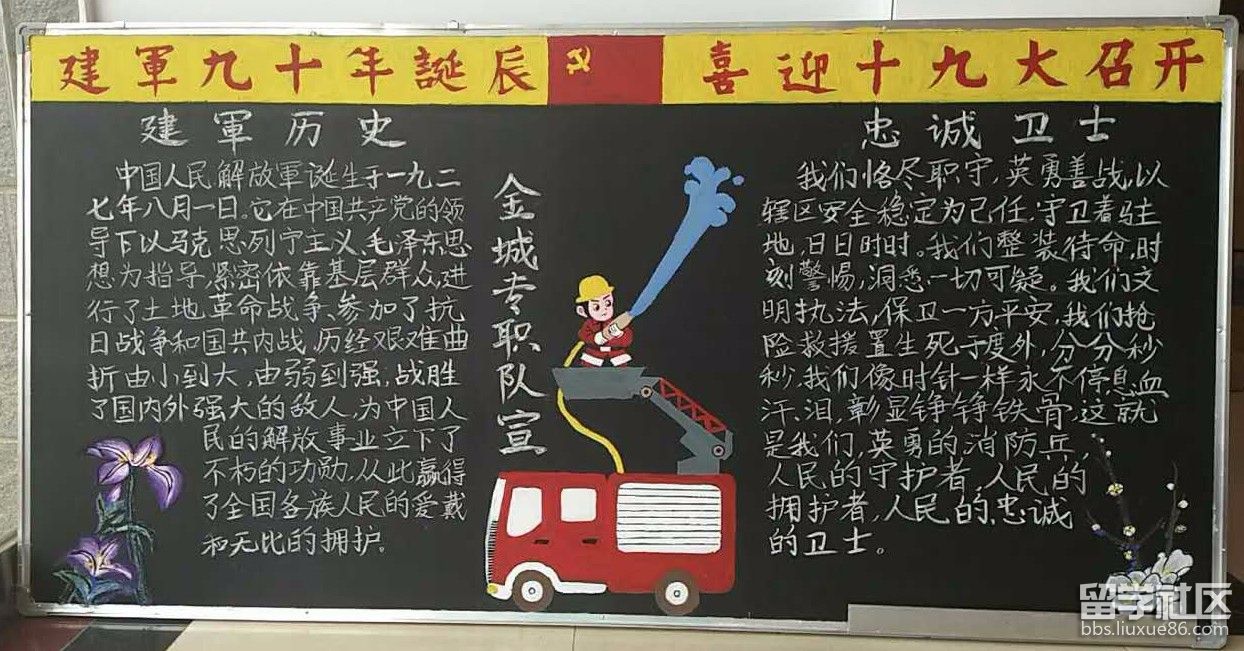 建軍九十年誕辰
喜迎十九大召开
建軍历史
中国人民解放軍诞生于一九二
七年八月一日。它在中国共产党的领
导下以马克思列宁主义、毛泽东思
想为指导,紧密依靠基层群众,进
行了土地革命战争、参加了抗
日战争和国共内战,历经艰难曲
折由小到大,由弱到强,战胜
了国内外强大的敌人,为中国人
民的解放事业立下了
不朽的功勋,从此赢得
了全国各族人民的爱戴
和无比的拥护。
金城专职队宣
忠诚卫士
我们恪尽职守,英勇善战,以
辖区安全稳定为己任,守卫着驻
地,日日时时。我们整装待命,时
刻警惕,洞悉一切可疑。我们文
明执法,保卫一方平安,我们抢
险救援置生死于度外,分分秒
秒,我们像时针一样永不停息,血
汗、泪,彰显铮铮铁骨,这就
是我们,英勇的消防兵,
人民的守护者,人民的
拥护者,人民的忠诚
的卫士。
留学社区
bbs.liuxue86.com